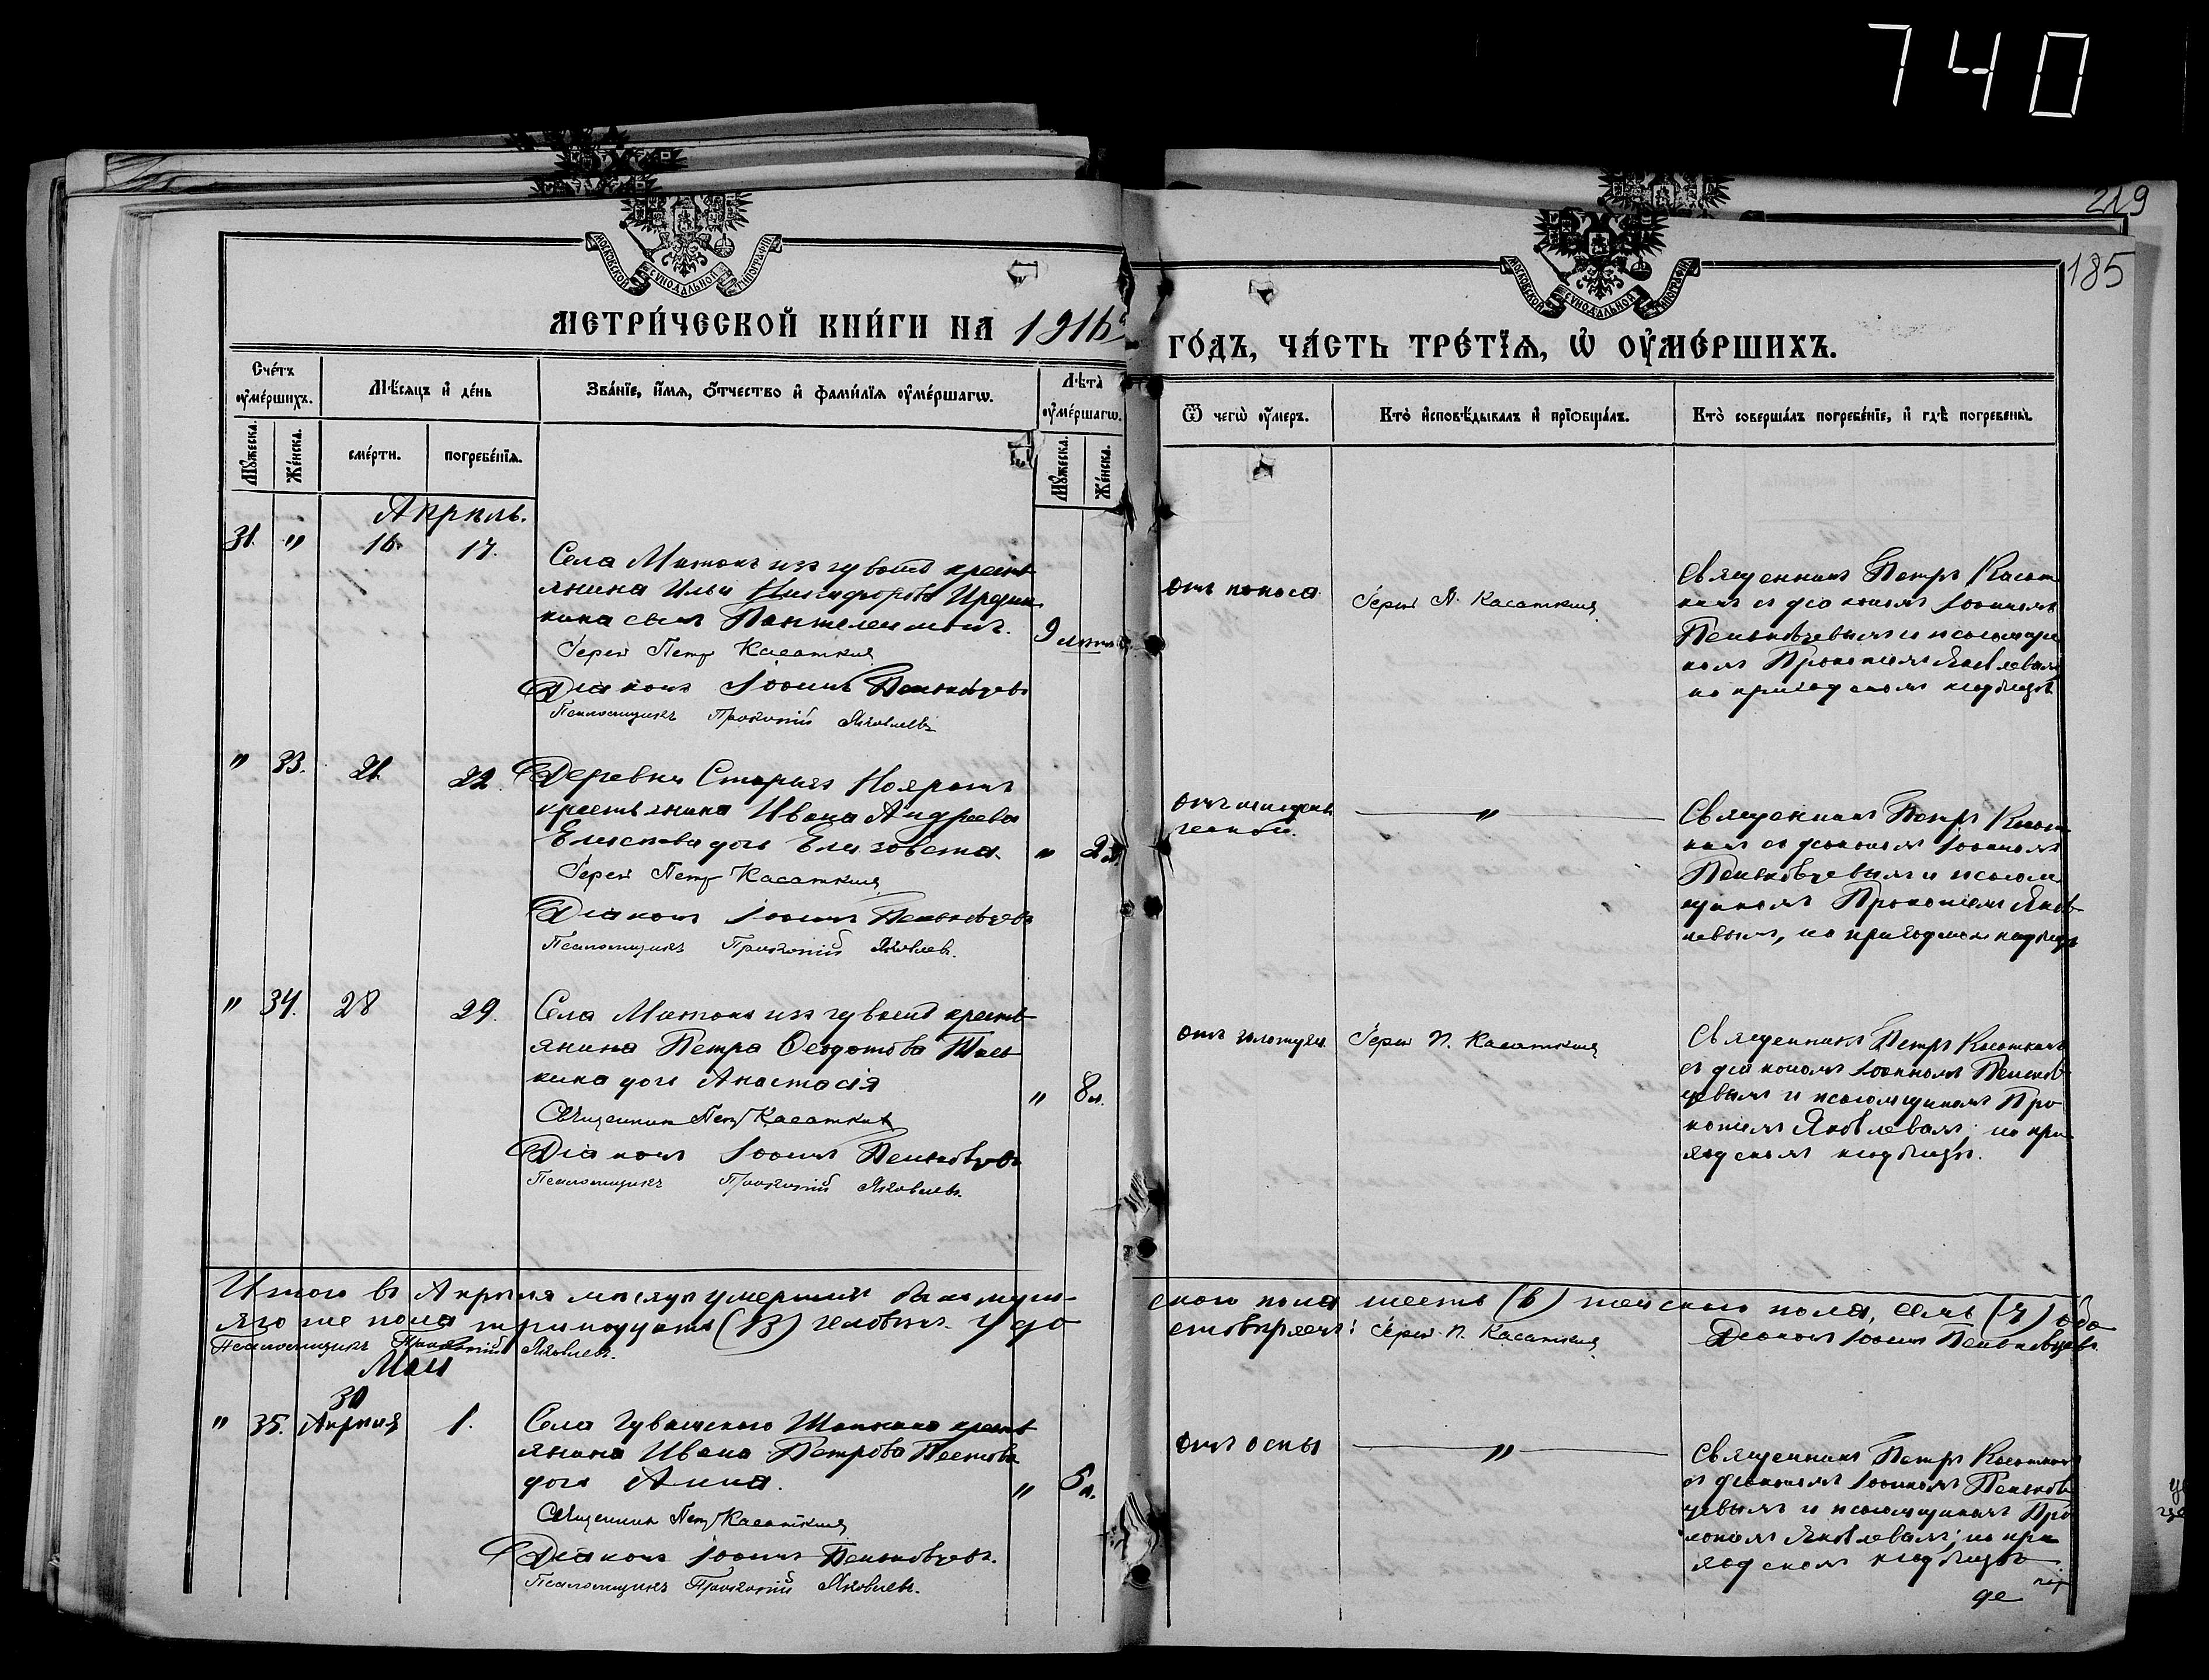 740
219
185
МОСКОВСКОЙ СѴНОДАЛЬНОЙ ТИПОГРАФІИ
МОСКОВСКОЙ СѴНОДАЛЬНОЙ ТИПОГРАФІИ
МЕТРИ́ЧЕСКОЙ КНИ́ГИ НА 1916
ГО́ДЪ, ЧА́СТЬ ТРЕ́ТЇѦ, Ѡ҆ ОУ҆МЕ́РШИХЪ.
Сче́тъ оу҆ме́ршихъ.
Мѣ́сѧцъ и҆ де́нь
Зва́нїе, и҆́мѧ, ѻ҆́тчество и҆ фами́лїѧ оу҆ме́ршагѡ.
Лѣ́та оу҆ме́ршагѡ.
Ѿ чегѡ̀ оу҆́меръ.
Кто̀ и҆сповѣ́дывалъ и҆ прїѡбща́лъ.
Кто̀ соверша́лъ погребе́нїе, и҆ гдѣ̀ погребены̀.
Мꙋ́жеска.
Же́нска.
сме́рти.
погребе́нїѧ.
Мꙋ́жеска.
Же́нска.
Апрѣль.
31. " 16. 17.
Села Матакъ изъ чувашъ кресть
янина Ильи Никифорова
сынъ Пантелеимонъ.
9 лѣтъ
Іерей Петръ Касаткинъ
Діаконъ Іоаннъ Пеньковцевъ
Псаломщикъ Прокопій Яковлевъ
отъ поноса
Іерей П. Касаткинъ
Священникъ Петръ Касат
кинъ съ діакономъ Іоанномъ
Пеньковцевымъ и псаломщи
комъ Прокопіемъ Яковлевымъ
на приходскомъ кладбищѣ
" 33. 21. 22.
Деревни Старыхъ
крестьянина Ивана Андреева
Елистова дочь Елизавета.
" 2 л.
Іерей Петръ Касаткинъ
Діаконъ Іоаннъ Пеньковцевъ
Псаломщикъ Прокопій Яковлевъ.
"
Священникъ Петръ Касат
кинъ съ діакономъ Іоанномъ
Пеньковцевымъ и псалом
щикомъ Прокопіемъ Яков-
левымъ, на приходскомъ кладбищѣ
" 34. 28 29.
Села Матакъ изъ чувашъ кресть
янина Петра Ѳеодотова
кина дочь Анастасія
" 8 л.
Священникъ Петръ Касаткинъ
Діаконъ Іоаннъ Пеньковцевъ
Псаломщикъ Прокопій Яковлевъ.
отъ золотухи
Іерей П. Касаткинъ
Священникъ Петръ Касаткинъ
съ діакономъ Іоанномъ Пеньков
цевымъ и псаломщикомъ Про
копіемъ Яковлевымъ; на при
ходскомъ кладбищѣ.
Итого въ Апрѣлѣ мѣсяцѣ умершихъ было муж-
ского пола шесть (6) женскаго пола, семь (7) обо
яго же пола тринадцать (13) человѣкъ. Удо
стовѣряемъ: Іерей П. Касаткинъ
Діаконъ Іоаннъ Пеньковцевъ.
Псаломщикъ Прокопій Яковлевъ.
Май
" 35. 30 Апрѣля 1.
Села Чувашскаго кресть
янина Ивана Петрова
дочь Анна.
" 5 л.
Священникъ Петръ Касаткинъ
Діаконъ Іоаннъ Пеньковцевъ.
Псаломщикъ Прокопій Яковлевъ.
отъ оспы
"
Священникъ Петръ Касаткинъ
съ діакономъ Іоанномъ Пеньков
цевымъ и псаломщикомъ Про
копіемъ Яковлевымъ; на при
ходскомъ кладбищѣ